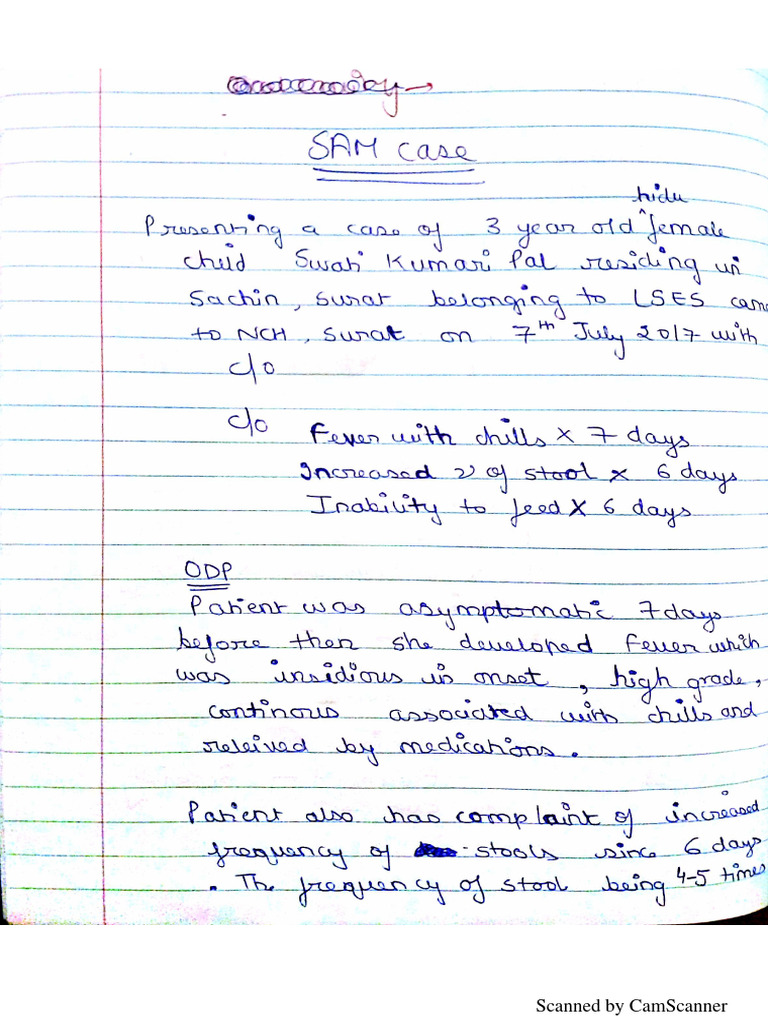 SAM case
hidu
Presenting a case of 3 year old ^ female
child Swati Kumari Pal residing in
Sachin, surat belonging to LSES came
to NCH, surat on 7th July 2017 with
c/o
c/o Fever with chills x 7 days
Increased ν of stool x 6 days
Inability to feed x 6 days
ODP
Patient was asymptomatic 7days
before then she developed fever which
was insidious in onset, high grade,
continous associated with chills and
releived by medications.
Patient also has complaint of increased
frequency of stools since 6 days
. The frequency of stool being 4-5 times
Scanned by CamScanner